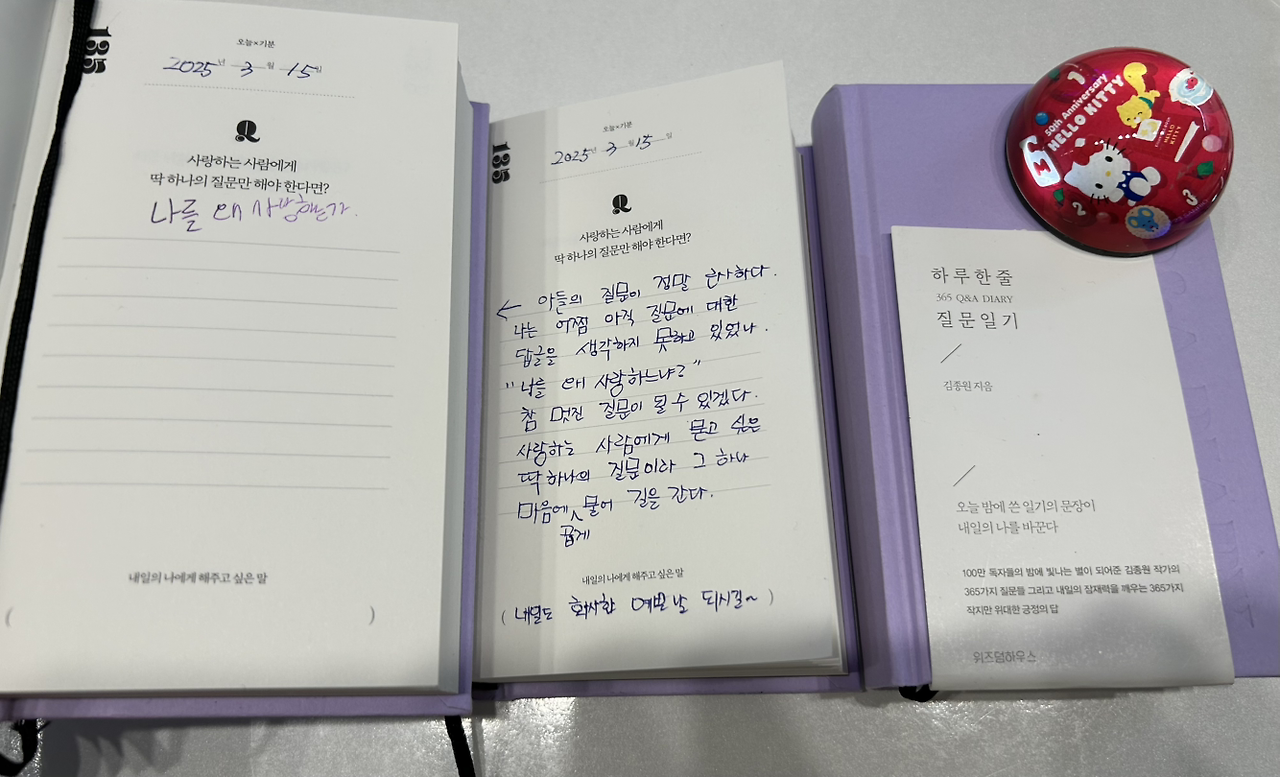 135
오늘×기분
2025년 3월 15일
Q
사랑하는 사람에게
딱 하나의 질문만 해야 한다면?
나를 왜 사랑하는가.
내일의 나에게 해주고 싶은 말
( )
135
오늘×기분
2025년 3월 15일
Q
사랑하는 사람에게
딱 하나의 질문만 해야 한다면?
← 아들의 질문이 정말 근사하다.
나는 어쩜 아직 질문에 대한
답글을 생각하지 못하고 있었나.
"나를 왜 사랑하느냐?"
참 멋진 질문이 될 수 있겠다.
사랑하는 사람에게 묻고 싶은
딱 하나의 질문이라 그 하나
마음에 물어 길을 간다.
곱게
내일의 나에게 해주고 싶은 말
( 내일도 화사한 예쁜 날 되시길~ )
50th Anniversary
HELLO KITTY
1
2
3
하루 한 줄
365 Q&A DIARY
질문 일기
김종원 지음
오늘 밤에 쓴 일기의 문장이
내일의 나를 바꾼다
100만 독자들의 밤에 빛나는 별이 되어준 김종원 작가의
365가지 질문들 그리고 내일의 잠재력을 깨우는 365가지
작지만 위대한 긍정의 답
위즈덤하우스